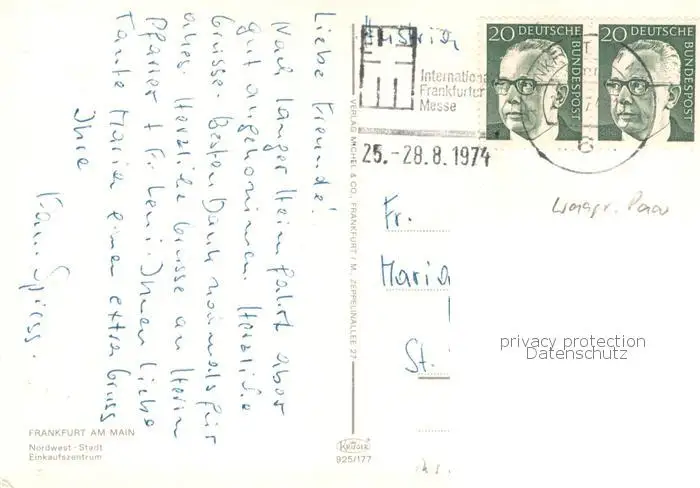 Liebe Freunde!
Nach langer Heimfahrt aber
gut angekommen. Herzliche
Grüsse. Besten Dank nochmals für
alles. Herzliche Grüsse an Herrn
Pfarrer + Fr. Leni. Ihnen liebe
Tante Maria einen extra Gruss
Ihre
Fam. Spiess.
FRANKFURT AM MAIN
Nordwest-Stadt
Einkaufszentrum
VERLAG MICHEL & CO., FRANKFURT / M., ZEPPELINALLEE 27
KRÜGER
925/177
Internationa
Frankfurter
Messe
25.-28.8.1974
20 DEUTSCHE BUNDESPOST
20 DEUTSCHE BUNDESPOST
6
Fr.
Maria
St.
privacy protection
Datenschutz